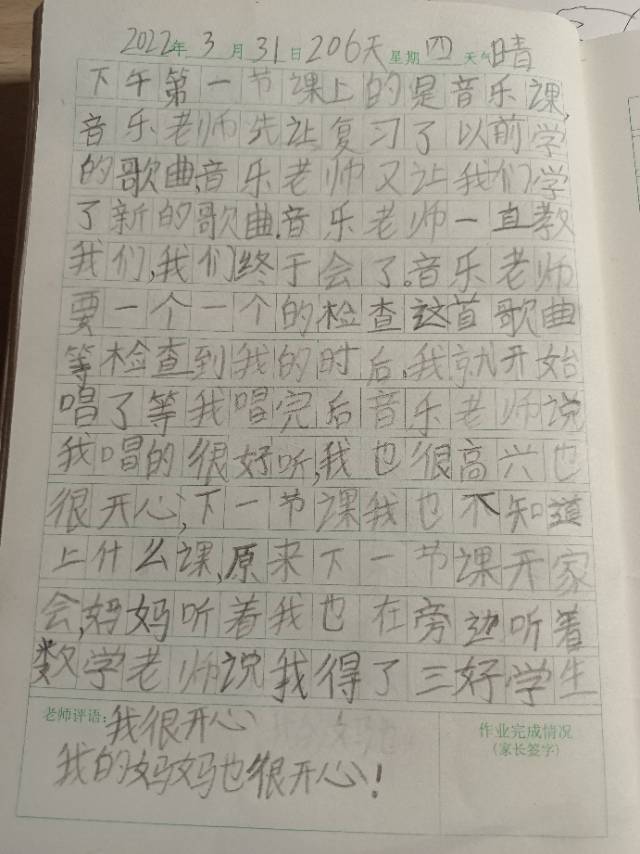 2022年 3月 31日 206天 星期四 天气晴
下午第一节课上的是音乐课,
音乐老师先让复习了以前学
的歌曲,音乐老师又让我们学
了新的歌曲,音乐老师一直教
我们,我们终于会了。音乐老师
要一个一个的检查这首歌曲
等检查到我的时后,我就开始
唱了等我唱完后音乐老师说
我唱的很好听,我也很高兴也
很开心,下一节课我也不知道
上什么课,原来下一节课开家
会,妈妈听着我也在旁边听着
数学老师说我得了三好学生
老师评语:我很开心
我的妈妈也很开心!
作业完成情况
(家长签字)